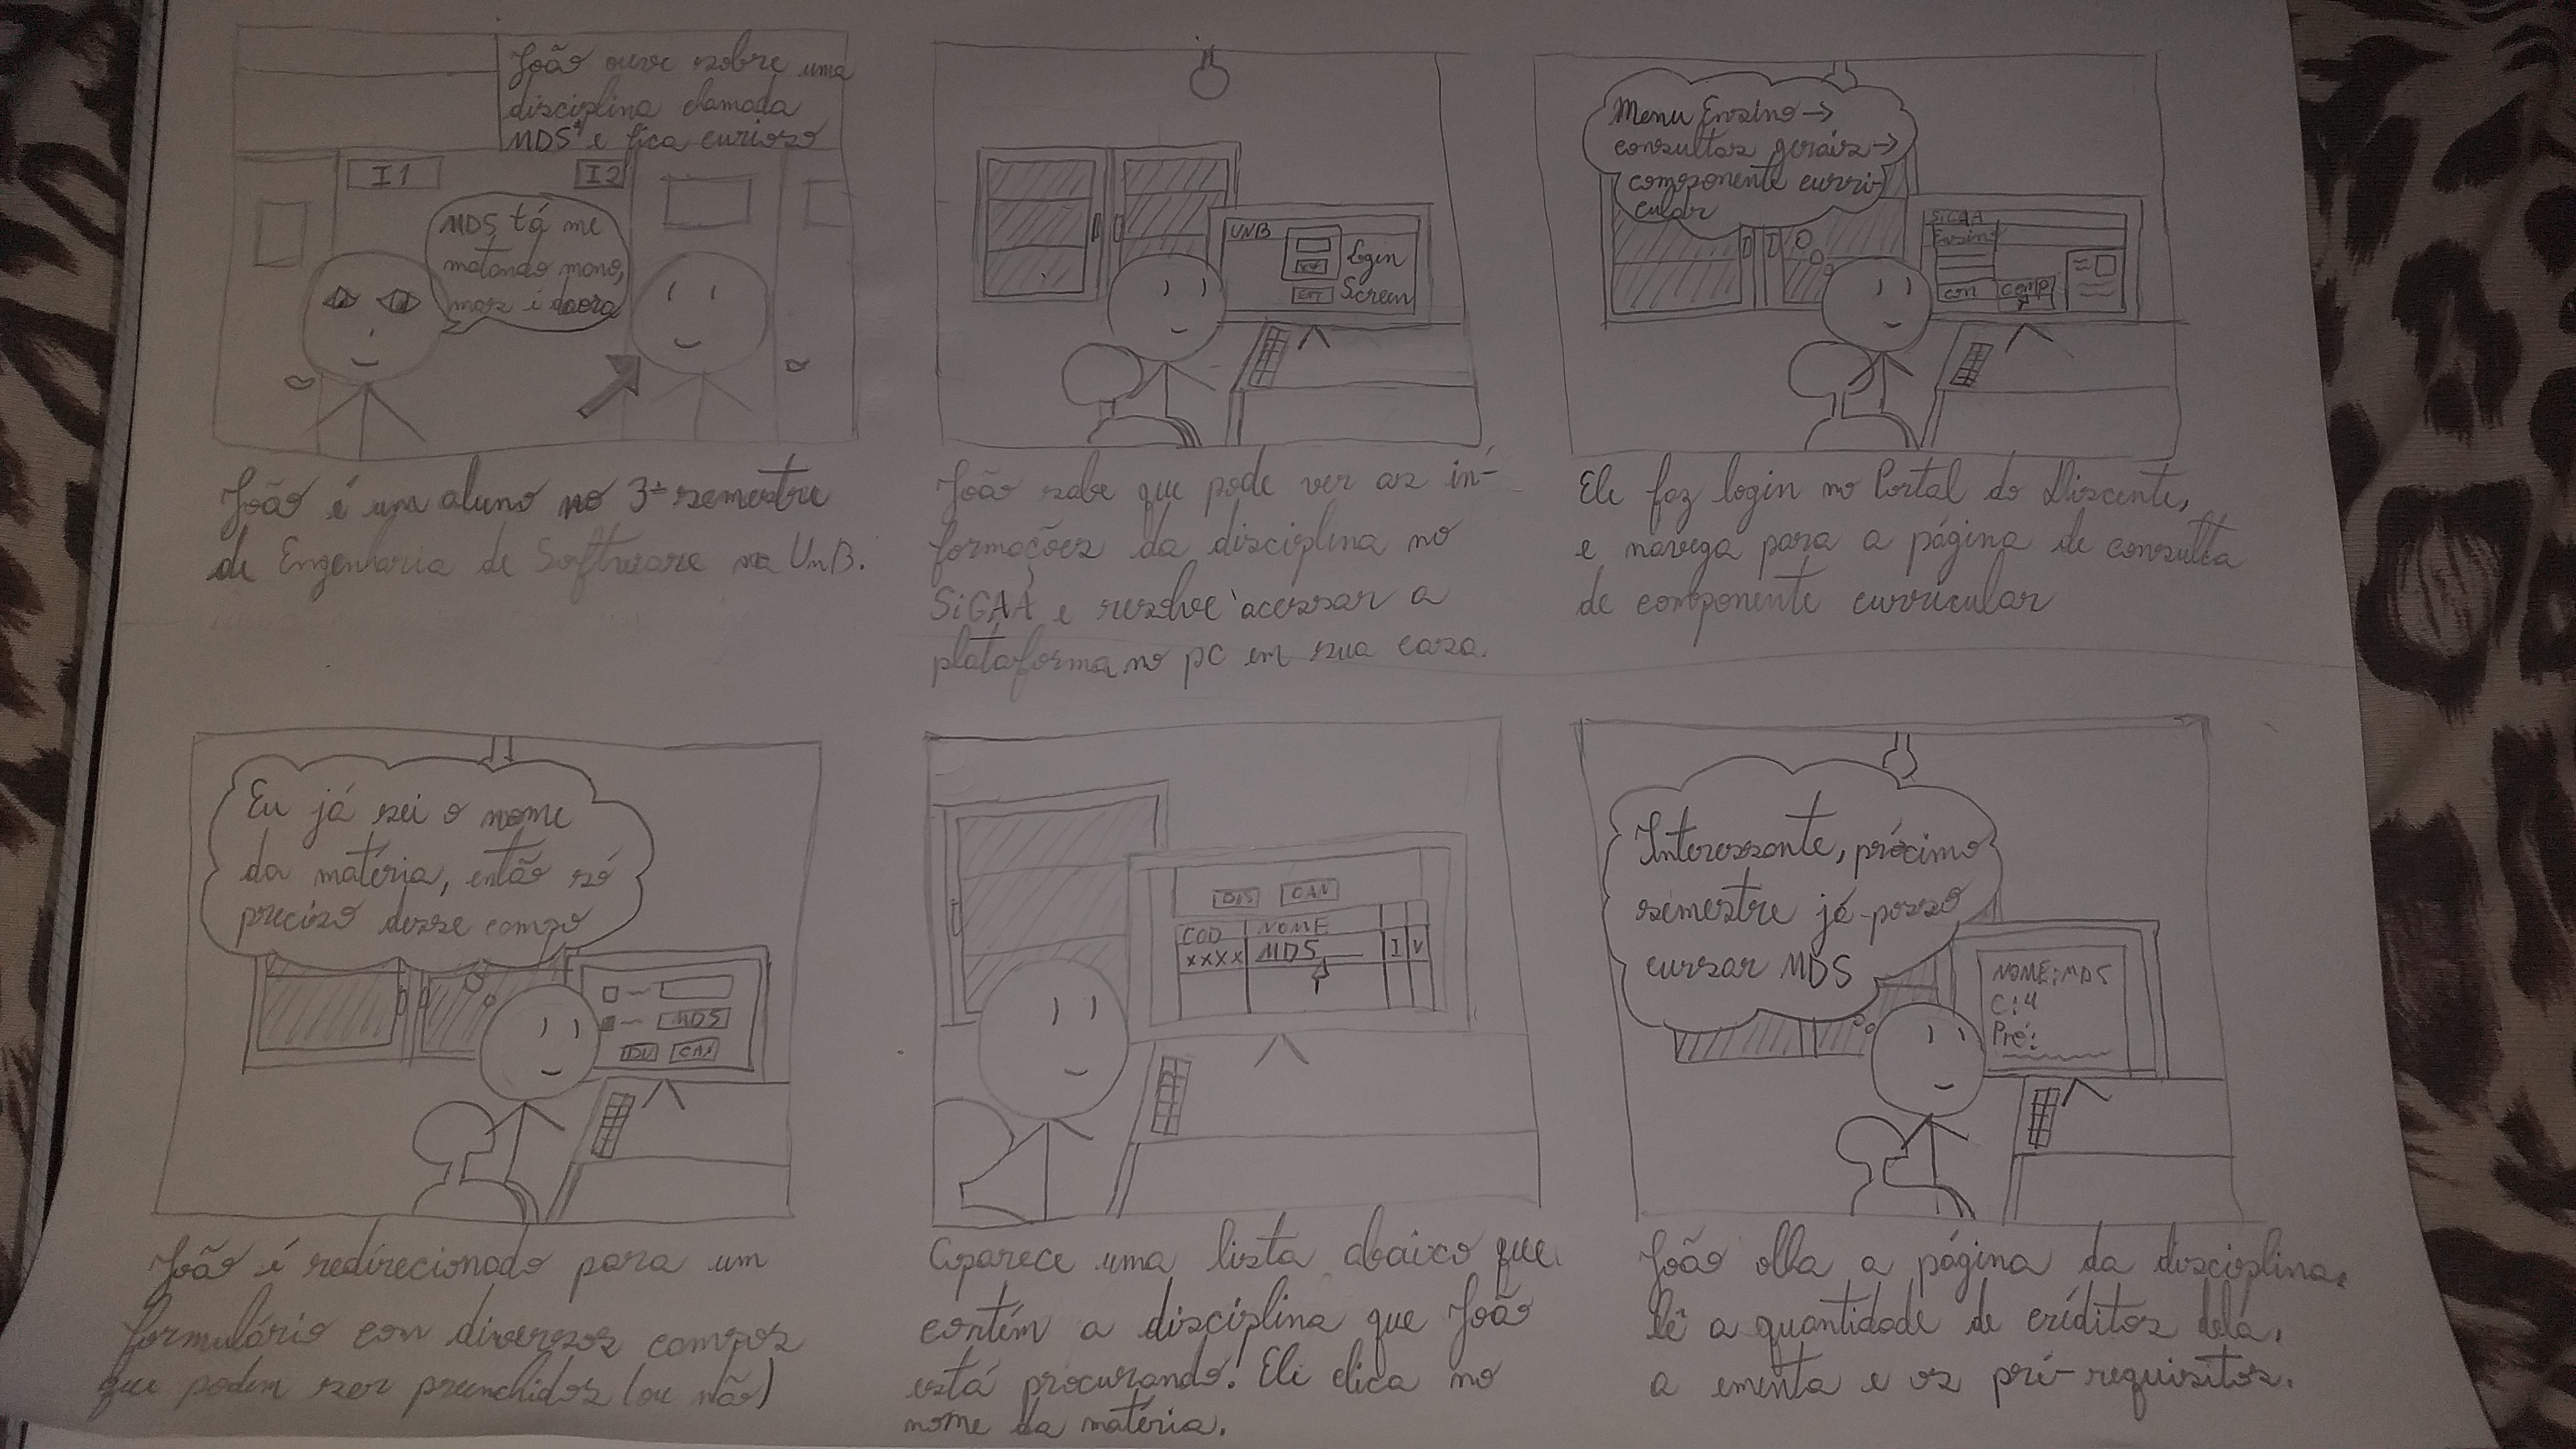 João ouve sobre uma
disciplina chamada
MDS* e fica curioso
I1
I2
MDS tá me
matando mano,
mas é daora
João é um aluno no 3º semestre
de Engenharia de Software na UnB.
UNB
Login
Screen
ENT
João sabe que pode ver as in-
formações da disciplina no
SiGAA e resolve acessar a
plataforma no pc em sua casa.
Menu Ensino →
consultas gerais →
componente curri-
cular
SiGAA
Ensino
con
comp
Ele faz login no Portal do Discente,
e navega para a página de consulta
de componente curricular
Eu já sei o nome
da matéria, então só
preciso desse campo
MDS
CAN
João é redirecionado para um
formulário com diversos campos
que podem ser preenchidos (ou não)
CAN
COD NOME
XXXX MDS I V
Aparece uma lista abaixo que
contém a disciplina que João
está procurando. Ele clica no
nome da matéria.
Interessante, próximo
semestre já posso
cursar MDS
NOME: MDS
C: 4
Pré:
João olha a página da disciplina,
lê a quantidade de créditos dela,
a ementa e os pré-requisitos.